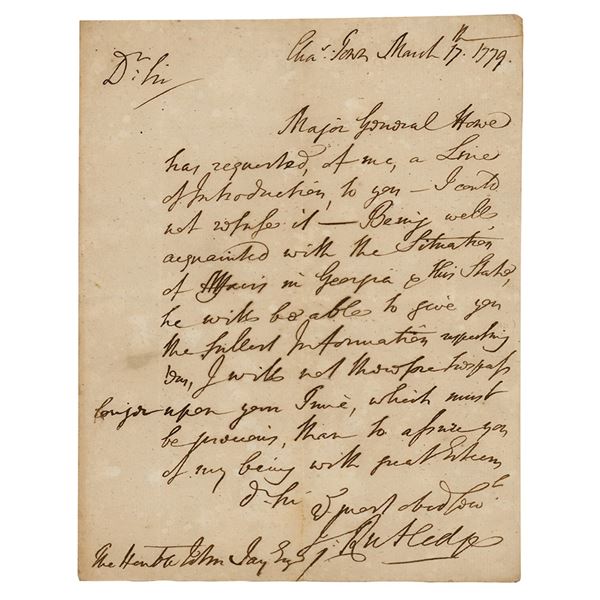 Chas. Town March 17th. 1779.
Dr. Sir
Major General Howe
has requested, of me, a Line
of Introduction, to you — I could
not refuse it — Being well
acquainted with the Situation
of Affairs in Georgia & this State,
he will be able to give you
the fullest Information respecting
'em, I will not therefore trespass
longer upon your Time, which must
be precious, than to assure you
of my being with great Esteem
dr. Sir
yr. most obed. Serv
J. Rutledge
The Honble John Jay Esq